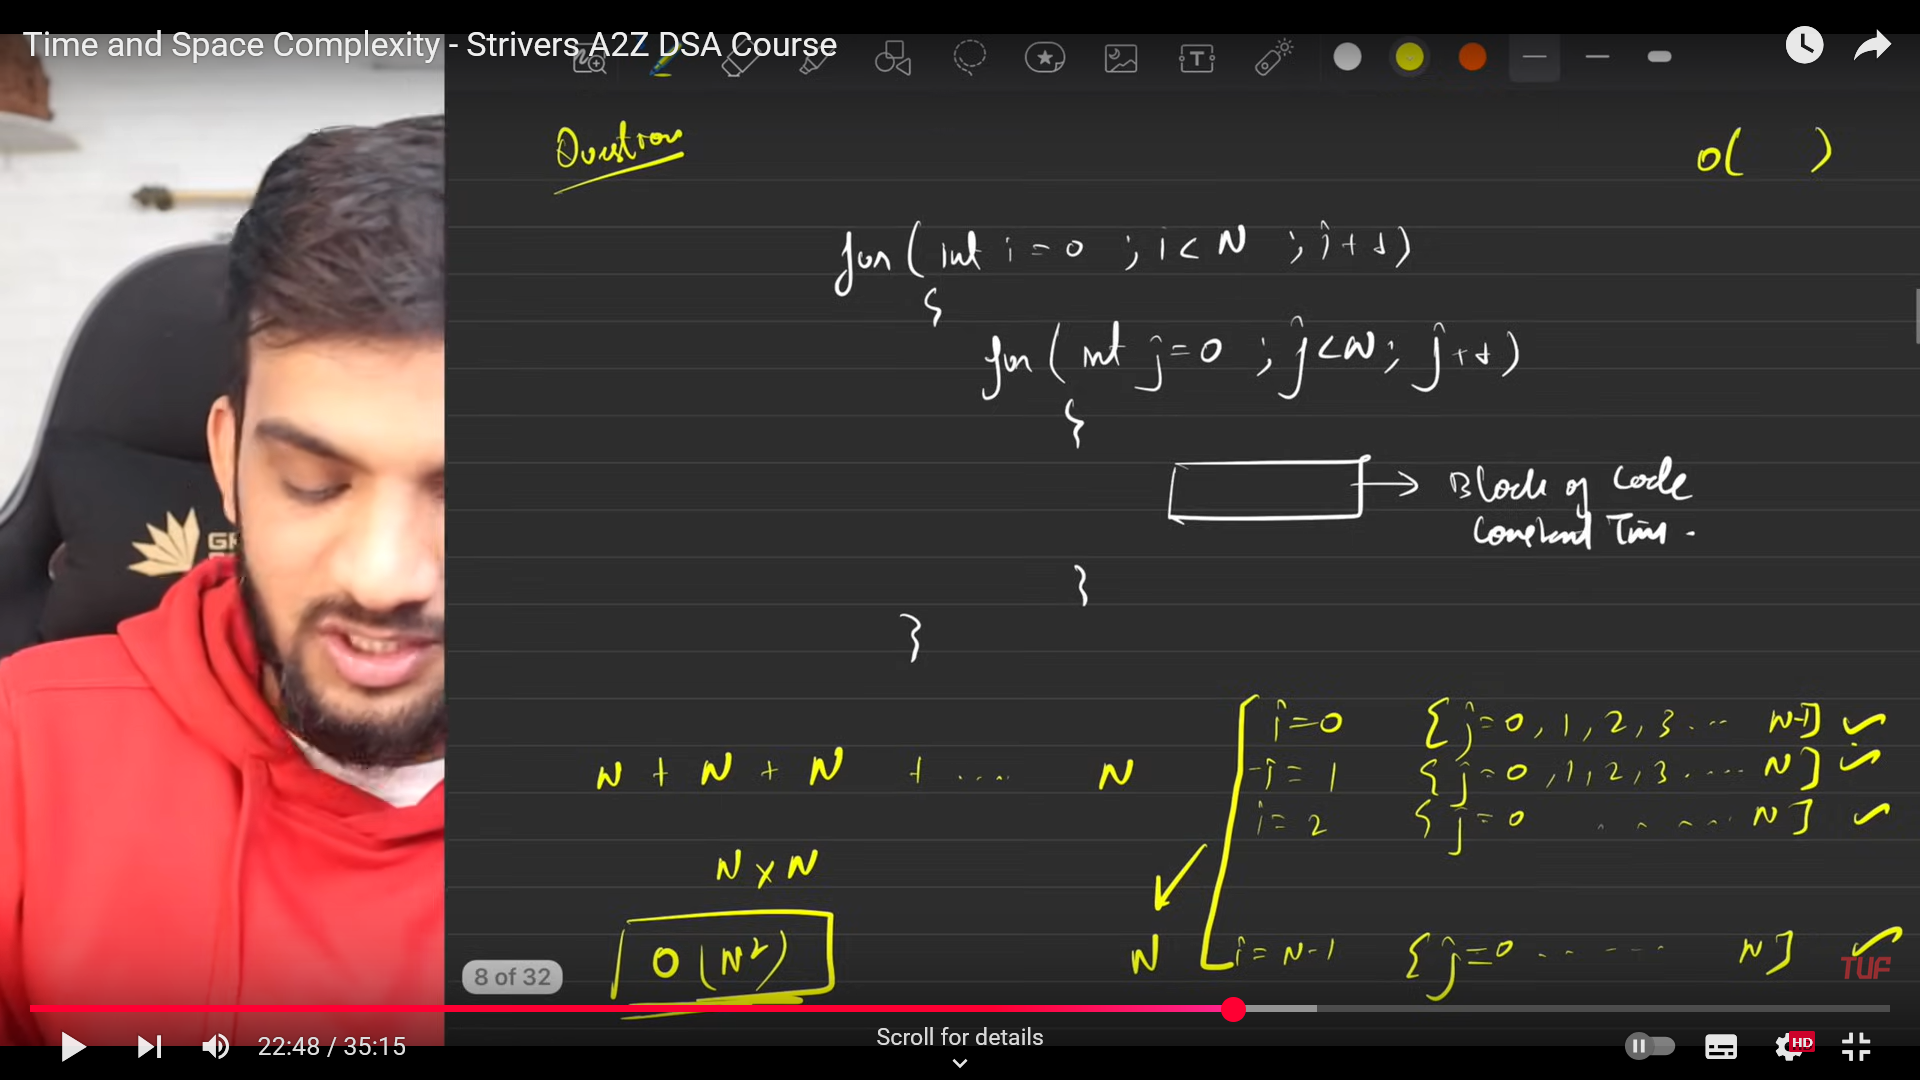 Time and Space Complexity - Strivers A2Z DSA Course
Question
O( )
for ( int i = 0 ; i < N ; i++)
{
for ( int j = 0 ; j < N ; j++)
{
Block of Code
Constant Time .
}
}
i = 0 { j = 0 , 1 , 2 , 3 ... N-1] ✓
N + N + N + .... N
i = 1 { j = 0 , 1 , 2 , 3 .... N ] ✓
i = 2 { j = 0 ..... N ] ✓
N x N
O (N²)
N
i = N-1 { j = 0 ..... N ] ✓
TUF
8 of 32
22:48 / 35:15
Scroll for details
HD